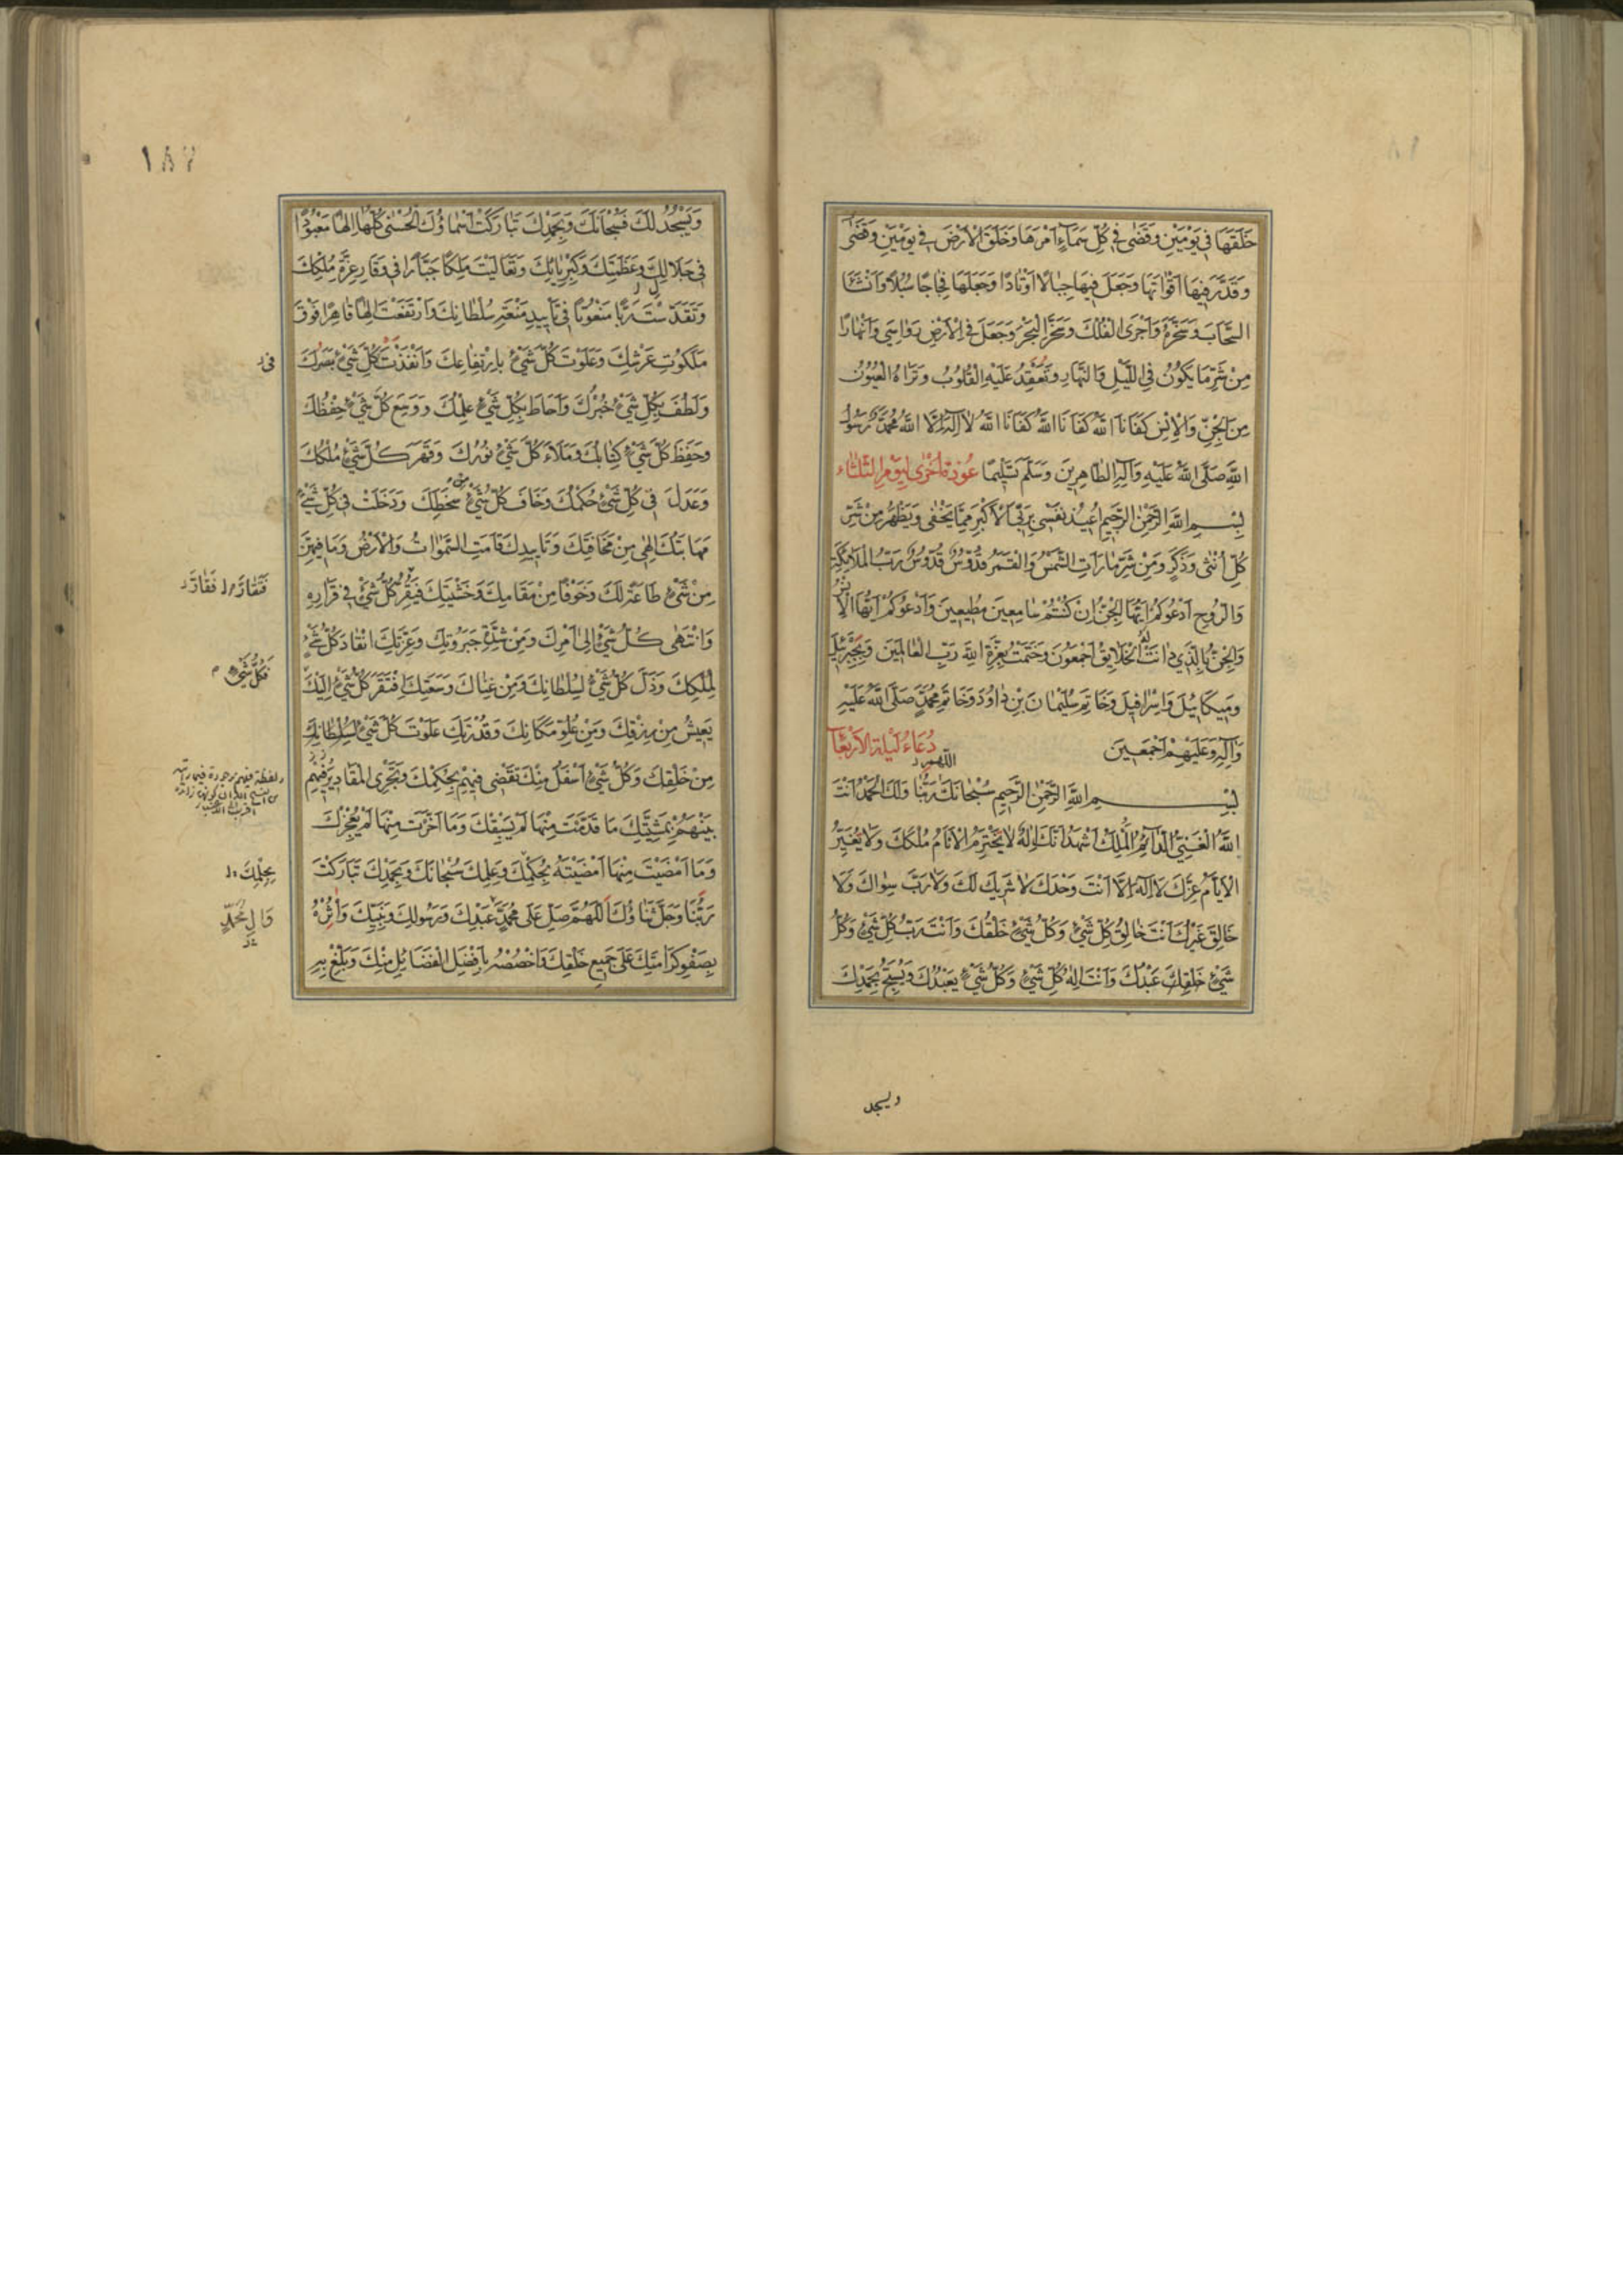 خَلَقَهَا فِي يَوْمَيْنِ وَقَضٰى فِي كُلِّ سَمَآءٍ اَمْرَهَا وَخَلَقَ الْاَرْضَ فِي يَوْمَيْنِ وَقَضٰى
وَقَدَّرَ فِيهَا اَقْوَاتَهَا وَجَعَلَ فِيهَا جِبَالًا اَوْتَادًا وَجَعَلَهَا فِجَاجًا سُبُلًا وَاَنْشَأَ
السَّحَابَ وَسَخَّرَهُ وَاَجْرَى الْفُلْكَ وَسَخَّرَ الْبَحْرَ وَجَعَلَ فِي الْاَرْضِ رَوَاسِيَ وَاَنْهَارًا
مِنْ شَرِّ مَا يَكُونُ فِي اللَّيْلِ وَالنَّهَارِ وَتَعْقِدُ عَلَيْهِ الْقُلُوبُ وَتَرَاهُ الْعُيُونُ
مِنَ الْجِنِّ وَالْاِنْسِ كَفَانَا اللّٰهُ كَفَانَا اللّٰهُ كَفَانَا اللّٰهُ لَا اِلٰهَ اِلَّا اللّٰهُ مُحَمَّدٌ رَسُولُ
اللّٰهِ صَلَّى اللّٰهُ عَلَيْهِ وَاٰلِهِ الطَّاهِرِينَ وَسَلَّمَ تَسْلِيمًا عُوذَةٌ اُخْرٰى لِيَوْمِ الثَّلَثَاء
بِسْمِ اللّٰهِ الرَّحْمٰنِ الرَّحِيمِ اُعِيذُ نَفْسِي بِرَبِّيَ الْاَكْبَرِ مِمَّا يَخْفٰى وَيَظْهَرُ مِنْ شَرِّ
كُلِّ اُنْثٰى وَذَكَرٍ وَمِنْ شَرِّ مَا رَاَتِ الشَّمْسُ وَالْقَمَرُ قُدُّوسٌ قُدُّوسٌ رَبُّ الْمَلَائِكَةِ
وَالرُّوحِ اَدْعُوكُمْ اَيُّهَا الْجِنُّ اِنْ كُنْتُمْ سَامِعِينَ مُطِيعِينَ وَاَدْعُوكُمْ اَيُّهَا الْاِنْسُ
وَالْجِنُّ بِالَّذِي دَانَتْ لَهُ الْخَلَايِقُ اَجْمَعُونَ وَخَتَمْتُ بِعِزَّةِ اللّٰهِ رَبِّ الْعَالَمِينَ وَبِجَبْرَئِيلَ
وَمِيكَائِيلَ وَاِسْرَافِيلَ وَخَاتَمِ سُلَيْمَانَ بْنِ دَاوُدَ وَخَاتَمِ مُحَمَّدٍ صَلَّى اللّٰهُ عَلَيْهِ
وَاٰلِهِ وَعَلَيْهِمْ اَجْمَعِينَ دُعَاءُ لَيْلَةِ الْاَرْبِعَآءِ
اللّهم
بِسْمِ اللّٰهِ الرَّحْمٰنِ الرَّحِيمِ سُبْحَانَكَ رَبَّنَا وَلَكَ الْحَمْدُ اَنْتَ
اللّٰهُ الْغَنِيُّ الدَّآئِمُ الْمَلِكُ اَشْهَدُ اَنَّكَ اِلٰهٌ لَا يَخْتَرِمُ الْاَيَّامُ مُلْكَكَ وَلَا يُغَيِّرُ
الْاَيَّامُ عِزَّكَ لَا اِلٰهَ اِلَّا اَنْتَ وَحْدَكَ لَا شَرِيكَ لَكَ وَلَا رَبَّ سِوَاكَ وَلَا
خَالِقَ غَيْرُكَ اَنْتَ خَالِقُ كُلِّ شَيْءٍ وَكُلُّ شَيْءٍ خَلْقُكَ وَاَنْتَ رَبُّ كُلِّ شَيْءٍ وَكُلُّ
شَيْءٍ خَلَقْتَ عَبْدُكَ وَاَنْتَ اِلٰهُ كُلِّ شَيْءٍ وَكُلُّ شَيْءٍ يَعْبُدُكَ وَيُسَبِّحُ بِحَمْدِكَ
ويسجد
١٨٧
وَيَسْجُدُ لَكَ فَسُبْحَانَكَ وَبِحَمْدِكَ تَبَارَكَتْ اَسْمَاؤُكَ الْحُسْنٰى كُلُّهَا اِلٰهًا مَعْبُودًا
فِي جَلَالِكَ وَعَظَمَتِكَ وَكِبْرِيَائِكَ وَتَعَالَيْتَ مَلِكًا جَبَّارًا فِي وَقَارِ عِزَّةِ مُلْكِكَ
وَتَقَدَّسْتَ رَبًّا مَنْعُوتًا فِي تَأْيِيدِ مَنْعَةِ سُلْطَانِكَ وَارْتَفَعْتَ اِلٰهًا قَاهِرًا فَوْقَ
مَلَكُوتِ عَرْشِكَ وَعَلَوْتَ كُلَّ شَيْءٍ بِارْتِفَاعِكَ وَاَنْفَذْتَ كُلَّ شَيْءٍ بَصَرَكَ
وَلَطُفَ بِكُلِّ شَيْءٍ خُبْرُكَ وَاَحَاطَ بِكُلِّ شَيْءٍ عِلْمُكَ وَوَسِعَ كُلَّ شَيْءٍ حِفْظُكَ
وَحَفِظَ كُلَّ شَيْءٍ كِتَابُكَ وَمَلَاَ كُلَّ شَيْءٍ نُورُكَ وَقَهَرَ كُلَّ شَيْءٍ مُلْكُكَ
وَعَدَلَ فِي كُلِّ شَيْءٍ حُكْمُكَ وَخَافَ كُلُّ شَيْءٍ سَخَطَكَ وَدَخَلَتْ فِي كُلِّ شَيْءٍ
مَهَابَتُكَ اِلٰهِي مِنْ مَخَافَتِكَ وَتَأْيِيدِكَ قَامَتِ السَّمٰوَاتُ وَالْاَرْضُ وَمَا فِيهِنَّ
مِنْ شَيْءٍ طَاعَةً لَكَ وَخَوْفًا مِنْ مَقَامِكَ وَخَشْيَتِكَ فَيَقِرُّ كُلُّ شَيْءٍ فِي قَرَارِهِ
وَانْتَهٰى كُلُّ شَيْءٍ اِلٰى اَمْرِكَ وَمِنْ شِدَّةِ جَبَرُوتِكَ وَعِزَّتِكَ انْقَادَ كُلُّ شَيْءٍ
لِمُلْكِكَ وَذَلَّ كُلُّ شَيْءٍ لِسُلْطَانِكَ وَمِنْ غِنَاكَ وَسَعَتِكَ افْتَقَرَ كُلُّ شَيْءٍ اِلَيْكَ
يَعِيشُ مِنْ رِزْقِكَ وَمِنْ عُلُوِّ مَكَانِكَ وَقُدْرَتِكَ عَلَوْتَ كُلَّ شَيْءٍ لِسُلْطَانِكَ
مِنْ خَلْقِكَ وَكُلُّ شَيْءٍ اَسْفَلُ مِنْكَ تَقْضِي فِيهِمْ بِحُكْمِكَ وَتَجْرِي الْمَقَادِيرُ فِيهِمْ
بَيْنَهُمْ بِمَشِيَّتِكَ مَا قَدَّمْتَ مِنْهَا لَمْ يَسْبِقْكَ وَمَا اَخَّرْتَ مِنْهَا لَمْ يُعْجِزْكَ
وَمَا اَمْضَيْتَ مِنْهَا اَمْضَيْتَهُ بِحُكْمِكَ وَعِلْمِكَ سُبْحَانَكَ وَبِحَمْدِكَ تَبَارَكْتَ
رَبَّنَا وَجَلَّ ثَنَاؤُكَ اَللّٰهُمَّ صَلِّ عَلٰى مُحَمَّدٍ عَبْدِكَ وَرَسُولِكَ وَنَبِيِّكَ وَاٰثِرْهُ
بِصَفْوِ كَرَامَتِكَ عَلٰى جَمِيعِ خَلْقِكَ وَاخْصُصْهُ بِاَفْضَلِ الْفَضَائِلِ مِنْكَ وَبَلِّغْ بِهِ
فَتَقَارَّ فَقَارَّ
فَكُلُّ شَيْءٍ
بِحِلْمِكَ
وَاٰلِ مُحَمَّدٍ